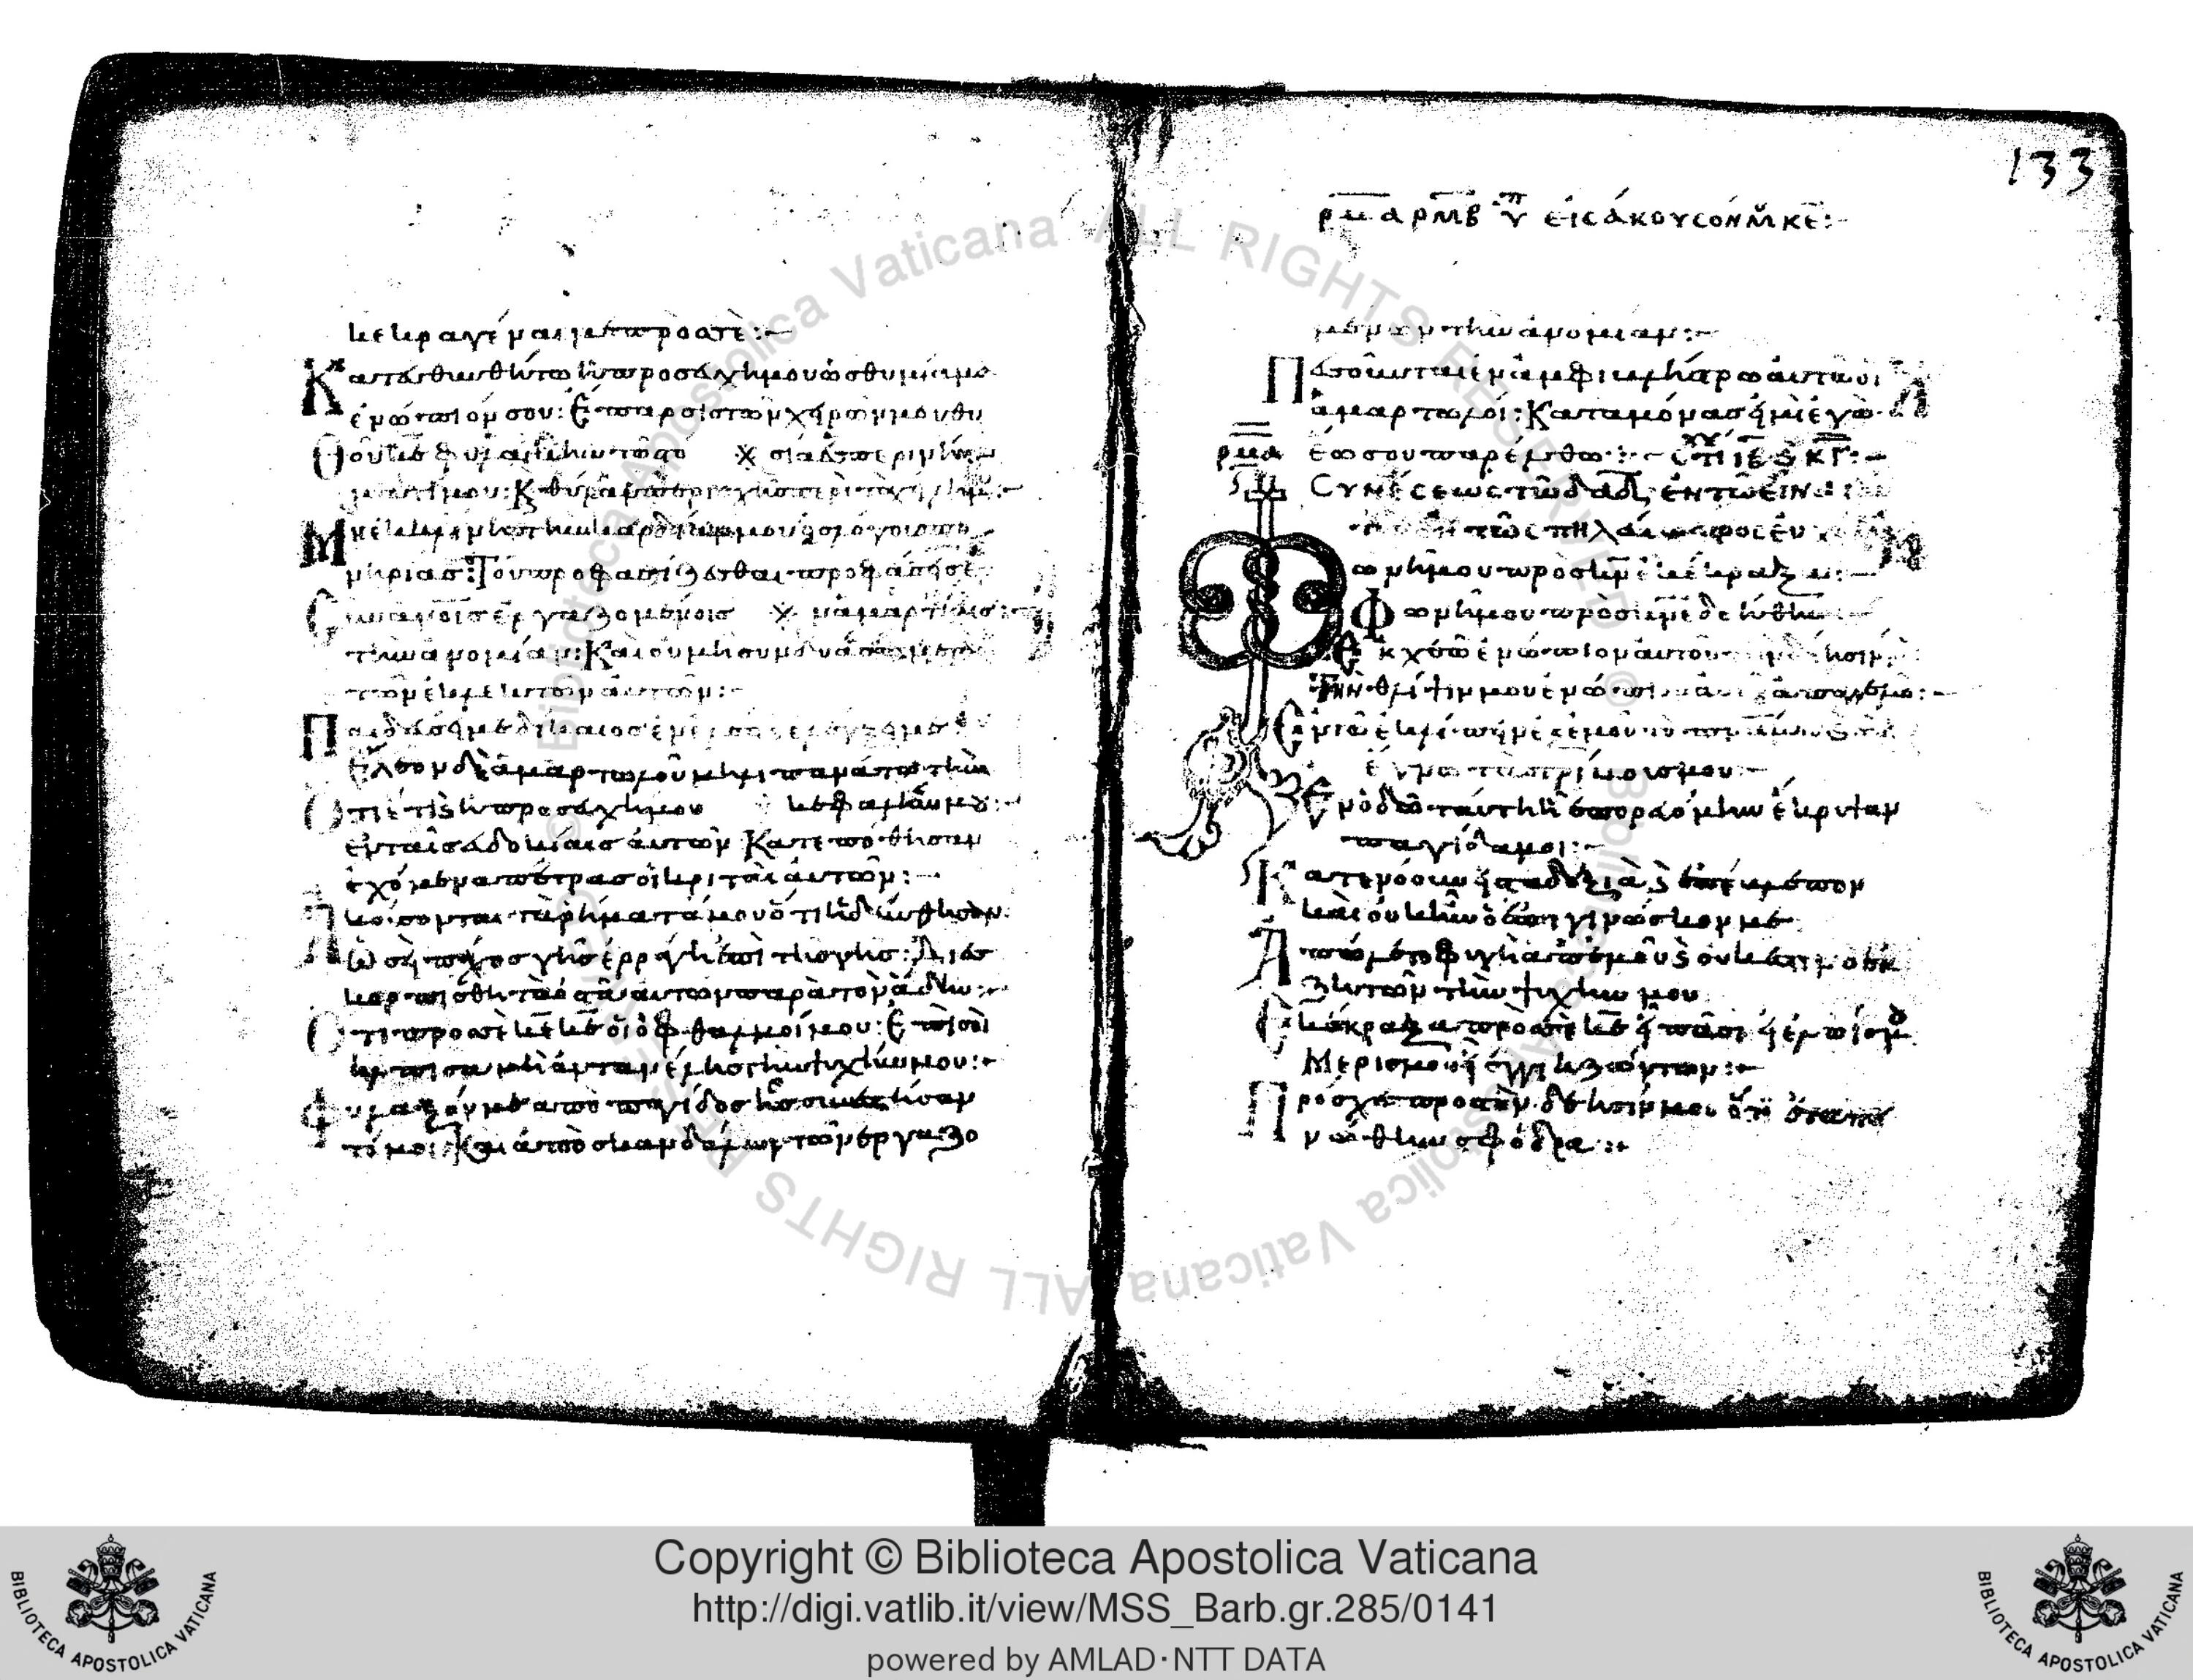 κεκραγέναι με πρὸς σέ:
Κατευθυνθήτω ἡ προσευχή μου ὡς θυμίαμα
ἐνώπιόν σου: Ἔπαρσις τῶν χειρῶν μου θυ
Θοῦ κε φυλακὴν τῷ στό ※ σία ἑσπερινή
ματί μου: Κ θύραν περιοχῆς περὶ τὰ χείλη
Μὴ ἐκκλίνῃς τὴν καρδίαν μου εἰς λόγους πο
νηρίας: Τοῦ προφασίζεσθαι προφάσεις
Σὺν ἀνοις ἐργαζομένοις ※ ἐν ἁμαρτίαις:
τὴν ἀνομίαν: Καὶ οὐ μὴ συνδυάσω μετὰ
τῶν ἐκλεκτῶν αὐτῶν:
Παιδεύσει με δίκαιος ἐν ἐλέει καὶ ἐλέγξει με
Ἔλεον δὲ ἁμαρτωλοῦ μὴ λιπανάτω τὴν
Ὅτι ἔτι ἡ προσευχή μου κεφαλήν μου:
ἐν ταῖς εὐδοκίαις αὐτῶν Κατεπόθησαν
ἐχόμενα πέτρας οἱ κριταὶ αὐτῶν:
Ἀκούσονται τὰ ῥήματά μου ὅτι ἡδύνθησαν:
Ὡσεὶ πάχος γῆς ἐρράγη ἐπὶ τῆς γῆς: Διεσ
κορπίσθη τὰ ὀστᾶ αὐτῶν παρὰ τὸν ἅδην:
Ὅτι πρὸς σὲ κε κε οἱ ὀφθαλμοί μου: Ἐπὶ σοὶ
ἤλπισα μὴ ἀντανέλῃς τὴν ψυχήν μου:
Φύλαξόν με ἀπὸ παγίδος ἧς συνεστήσαν
τό μοι: Καὶ ἀπὸ σκανδάλων τῶν ἐργαζο
133
ρμα ρμβ ψ εἰσάκουσόν μ κε:
μένων τὴν ἀνομίαν:
Πεσοῦνται ἐν ἀμφιβλήστρῳ αὐτῶν οἱ
ἁμαρτωλοί: Κατὰ μόνας εἰμὶ ἐγὼ
ρμα ἕως οὗ παρέλθω:
Συνέσεως τῷ δαδ, ἐν τῷ εἶναι
αὐτὸν ἐν τῷ σπηλαίῳ
Φωνῇ μου πρὸς κν ἐκέκραξα:
Φωνῇ μου πρὸς κν ἐδεήθην
Ἐκχεῶ ἐνώπιον αὐτοῦ τὴν δέησίν μου:
Τὴν θλίψιν μου ἐνώπιον αὐτοῦ ἀπαγγελῶ:
Ἐν τῷ ἐκλείπειν ἐξ ἐμοῦ τὸ πνα μου καὶ σὺ
ἔγνως τὰς τρίβους μου:
Ἐν ὁδῷ ταύτῃ ᾗ ἐπορευόμην ἔκρυψαν
παγίδα μοι:
Κατενόουν εἰς τὰ δεξιὰ καὶ ἐπέβλεπον
καὶ οὐκ ἦν ὁ ἐπιγινώσκων με
Ἀπώλετο φυγὴ ἀπ' ἐμοῦ καὶ οὐκ ἔστιν ὁ ἐκ
ζητῶν τὴν ψυχήν μου
Ἐκέκραξα πρὸς σὲ κε εἶπα σὺ εἶ ἐλπίς μου
Μερίς μου εἶ ἐν γῇ ζώντων:
Πρόσχες πρὸς τὴν δέησίν μου ὅτι ἐταπει
νώθην σφόδρα:
Copyright © Biblioteca Apostolica Vaticana
http://digi.vatlib.it/view/MSS_Barb.gr.285/0141
powered by AMLAD·NTT DATA
BIBLIOTECA APOSTOLICA VATICANA
BIBLIOTECA APOSTOLICA VATICANA